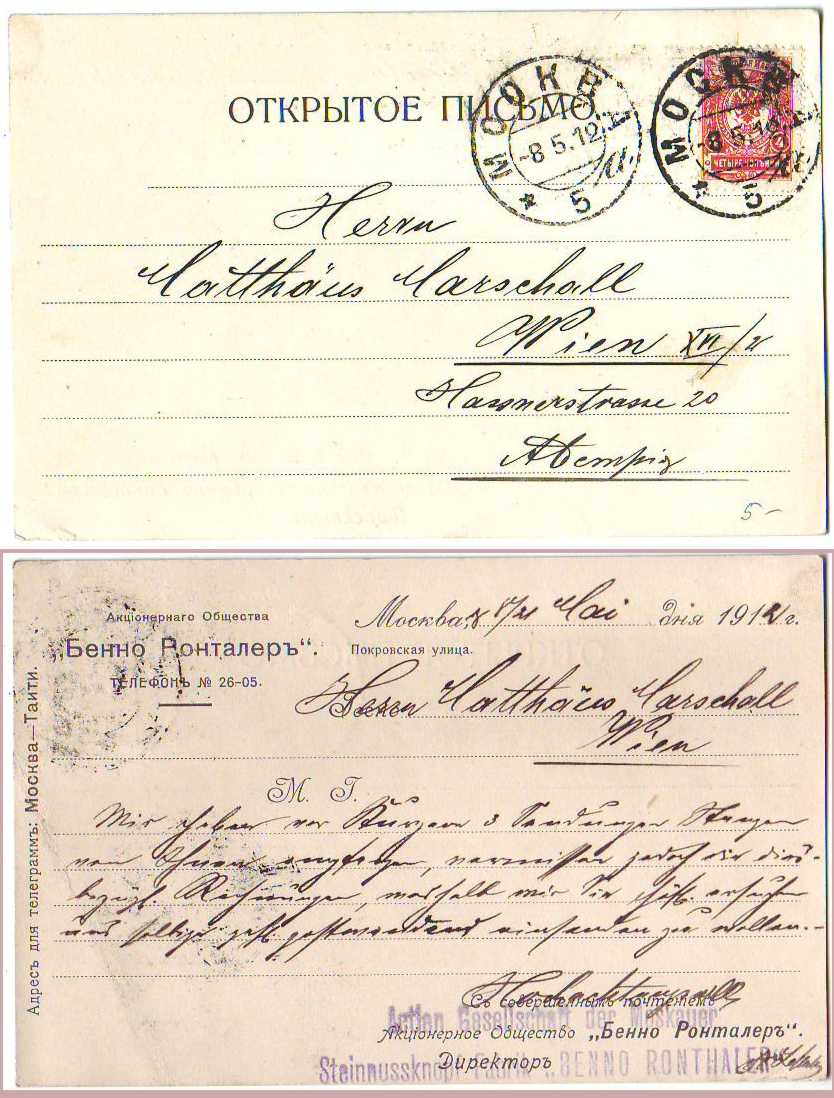 ОТКРЫТОЕ ПИСЬМО
МОСКВА
-8.5.12
5
МОСКВА
-8.5.12
5
ЧЕТЫРЕ КОП.
Herrn
Matthäus Marschall
Wien XVI/2
Hasnerstrasse 20
Австрія
5-
Акціонернаго Общества
„Бенно Ронталеръ“.
ТЕЛЕФОНЪ № 26-05.
Адресъ для телеграммъ: Москва—Таити.
Москва, 8/21 Mai дня 1912 г.
Покровская улица.
Herrn Matthäus Marschall
Wien
М. Г.
Wir haben vor Kurzem 3 Sendungen Stangen
von Ihnen empfangen, vermissen jedoch die dies-
bezgl. Rechnungen, weshalb wir Sie höfl. ersuchen
uns selbige gefl. postwendend einsenden zu wollen.-
Hochachtungsvoll
Съ совершеннымъ почтеніемъ
Actien Gesellschaft der Moskauer
Акціонерное Общество „Бенно Ронталеръ“.
Директоръ
Steinnussknopf Fabrik „BENNO RONTHALER“